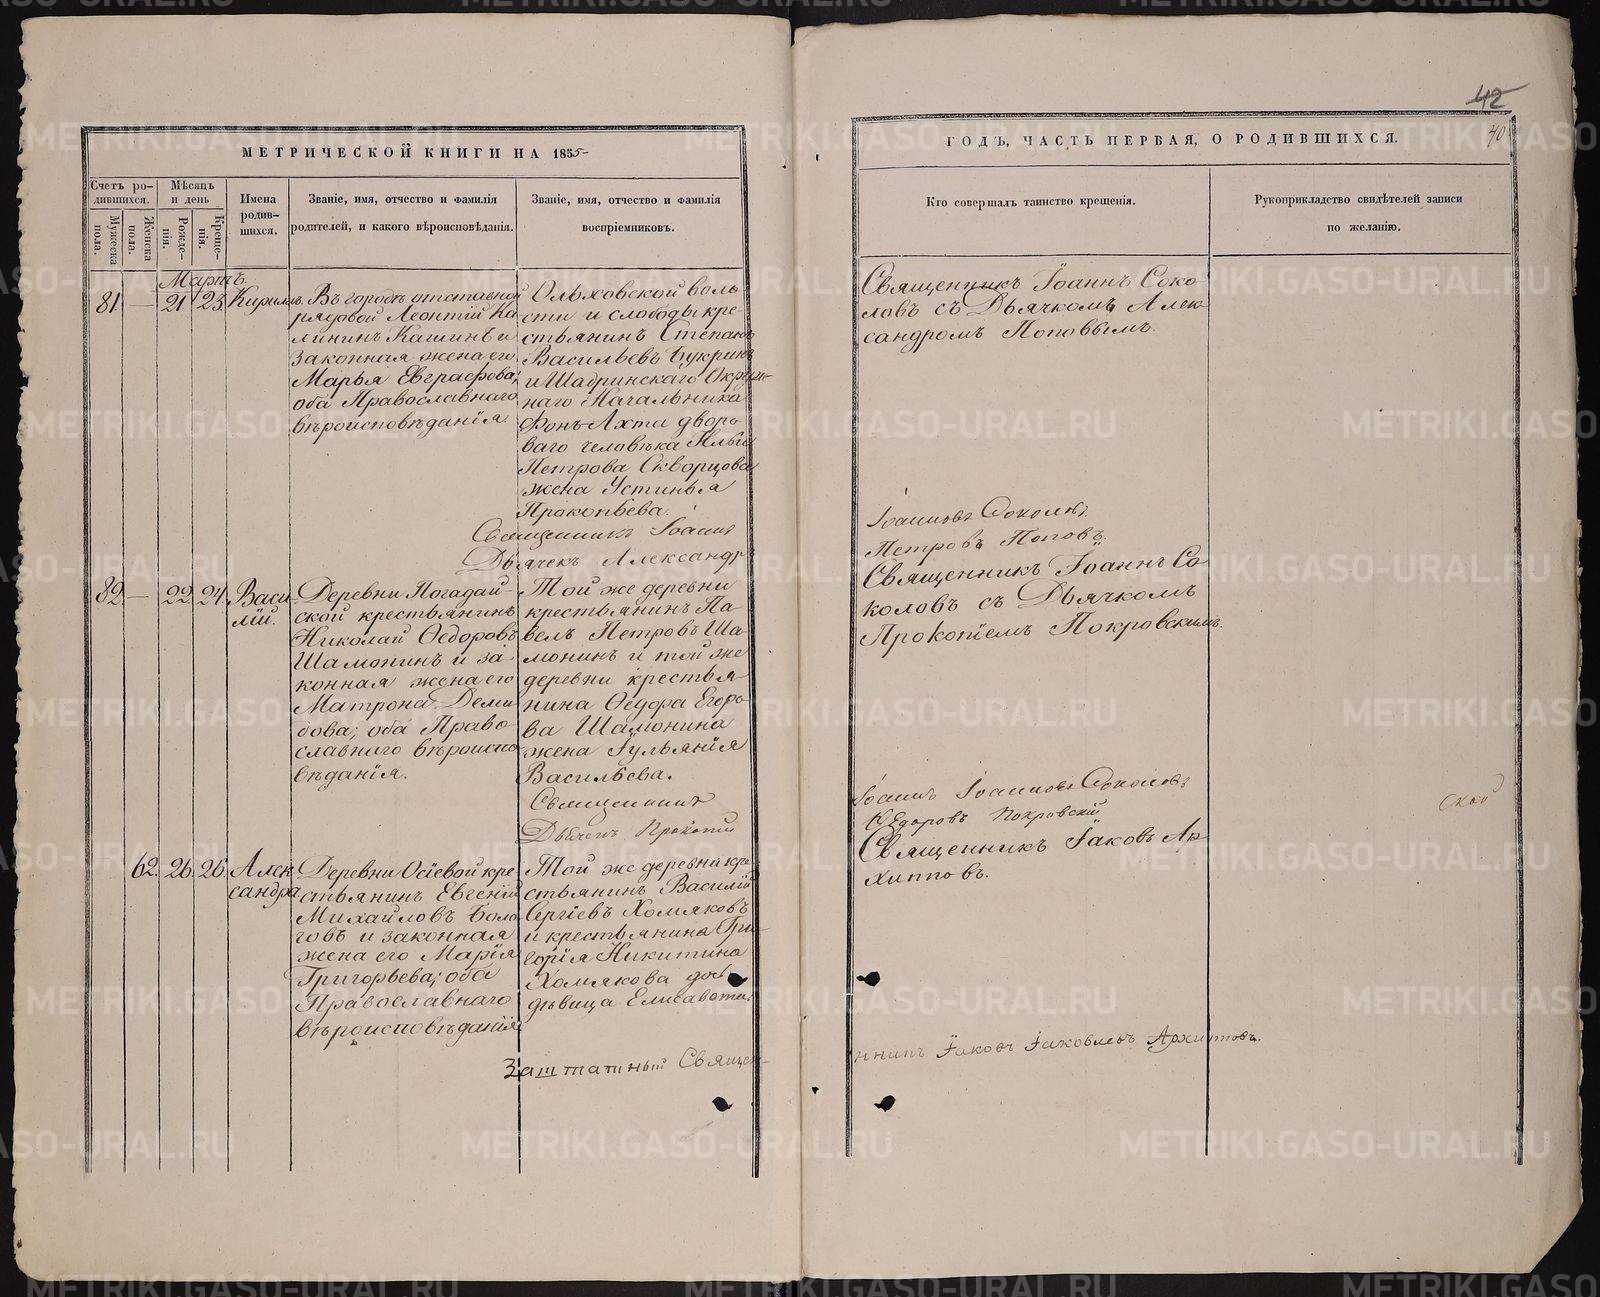 42
40
МЕТРИЧЕСКОЙ КНИГИ НА 1855
Счетъ ро-
дившихся.
Мужеска
пола.
Женска
пола.
Мѣсяцъ
и день
Рожде-
нія.
Креще-
нія.
Имена
родив-
шихся.
Званіе, имя, отчество и фамилія
родителей, и какого вѣроисповѣданія.
Званіе, имя, отчество и фамилія
воспріемниковъ.
Мартъ.
81. — 21 23. Кириллъ.
Въ городѣ отставной
рядовой Леонтій Ка
лининъ Кашинъ и
законная жена его
Марья Евграфова;
оба Православнаго
вѣроисповѣданія.
Ольховской воло
сти и слободы кре
стьянинъ Степанъ
Васильевъ Букринъ
и Шадринскаго Окруж-
наго Начальника
Фонъ Ахта дворо
ваго человѣка Ильи
Петрова Скворцова
жена Устинья
Прокопьева.
Священникъ Іоаннъ
Дьячекъ Александръ
82. — 22. 24. Васи-
лій.
Деревни Погадай-
ской крестьянинъ
Николай Ѳедоровъ
Шамонинъ и за-
конная жена его
Матрона Деми
дова; оба Право
славнаго вѣроиспо
вѣданія.
Той же деревни
крестьянинъ Па-
велъ Петровъ Ша-
монинъ и той же
деревни крестья
нина Ѳедора Егоро
ва Шамонина
жена Іульянія
Васильева.
Священникъ
Дьячекъ Прокопій
62. 26. 26. Алек
сандра
Деревни Осіевой кре
стьянинъ Евгеній
Михайловъ Боло
товъ и законная
жена его Марія
Григорьева; оба
Православнаго
вѣроисповѣданія
Той же деревни кре
стьянинъ Василій
Сергіевъ Хомяковъ
и крестьянина Гри-
горія Никитина
Хомякова дочь
дѣвица Елисавета.
Заштатный Священ-
ГОДЪ, ЧАСТЬ ПЕРВАЯ, О РОДИВШИХСЯ.
Кто совершалъ таинство крещенія.
Рукоприкладство свидѣтелей записи
по желанію.
Священникъ Іоаннъ Соко-
ловъ съ Дьячкомъ Алек-
сандромъ Поповымъ.
Іоанновъ Соколовъ
Петровъ Поповъ.
Священникъ Іоаннъ Со
коловъ съ Дьячкомъ
Прокопіемъ Покровскимъ.
Іоаннъ Іоанновъ Соколовъ
Ѳедоровъ Покровскій
ской
Священникъ Іаковъ Ар
хипповъ.
нникъ Іаковъ Іаковлевъ Архиповъ.
METRIKI.GASO-URAL.RU